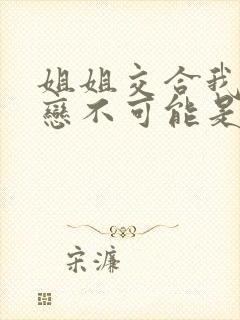 姐姐交合我
戀不可能是
宋濂